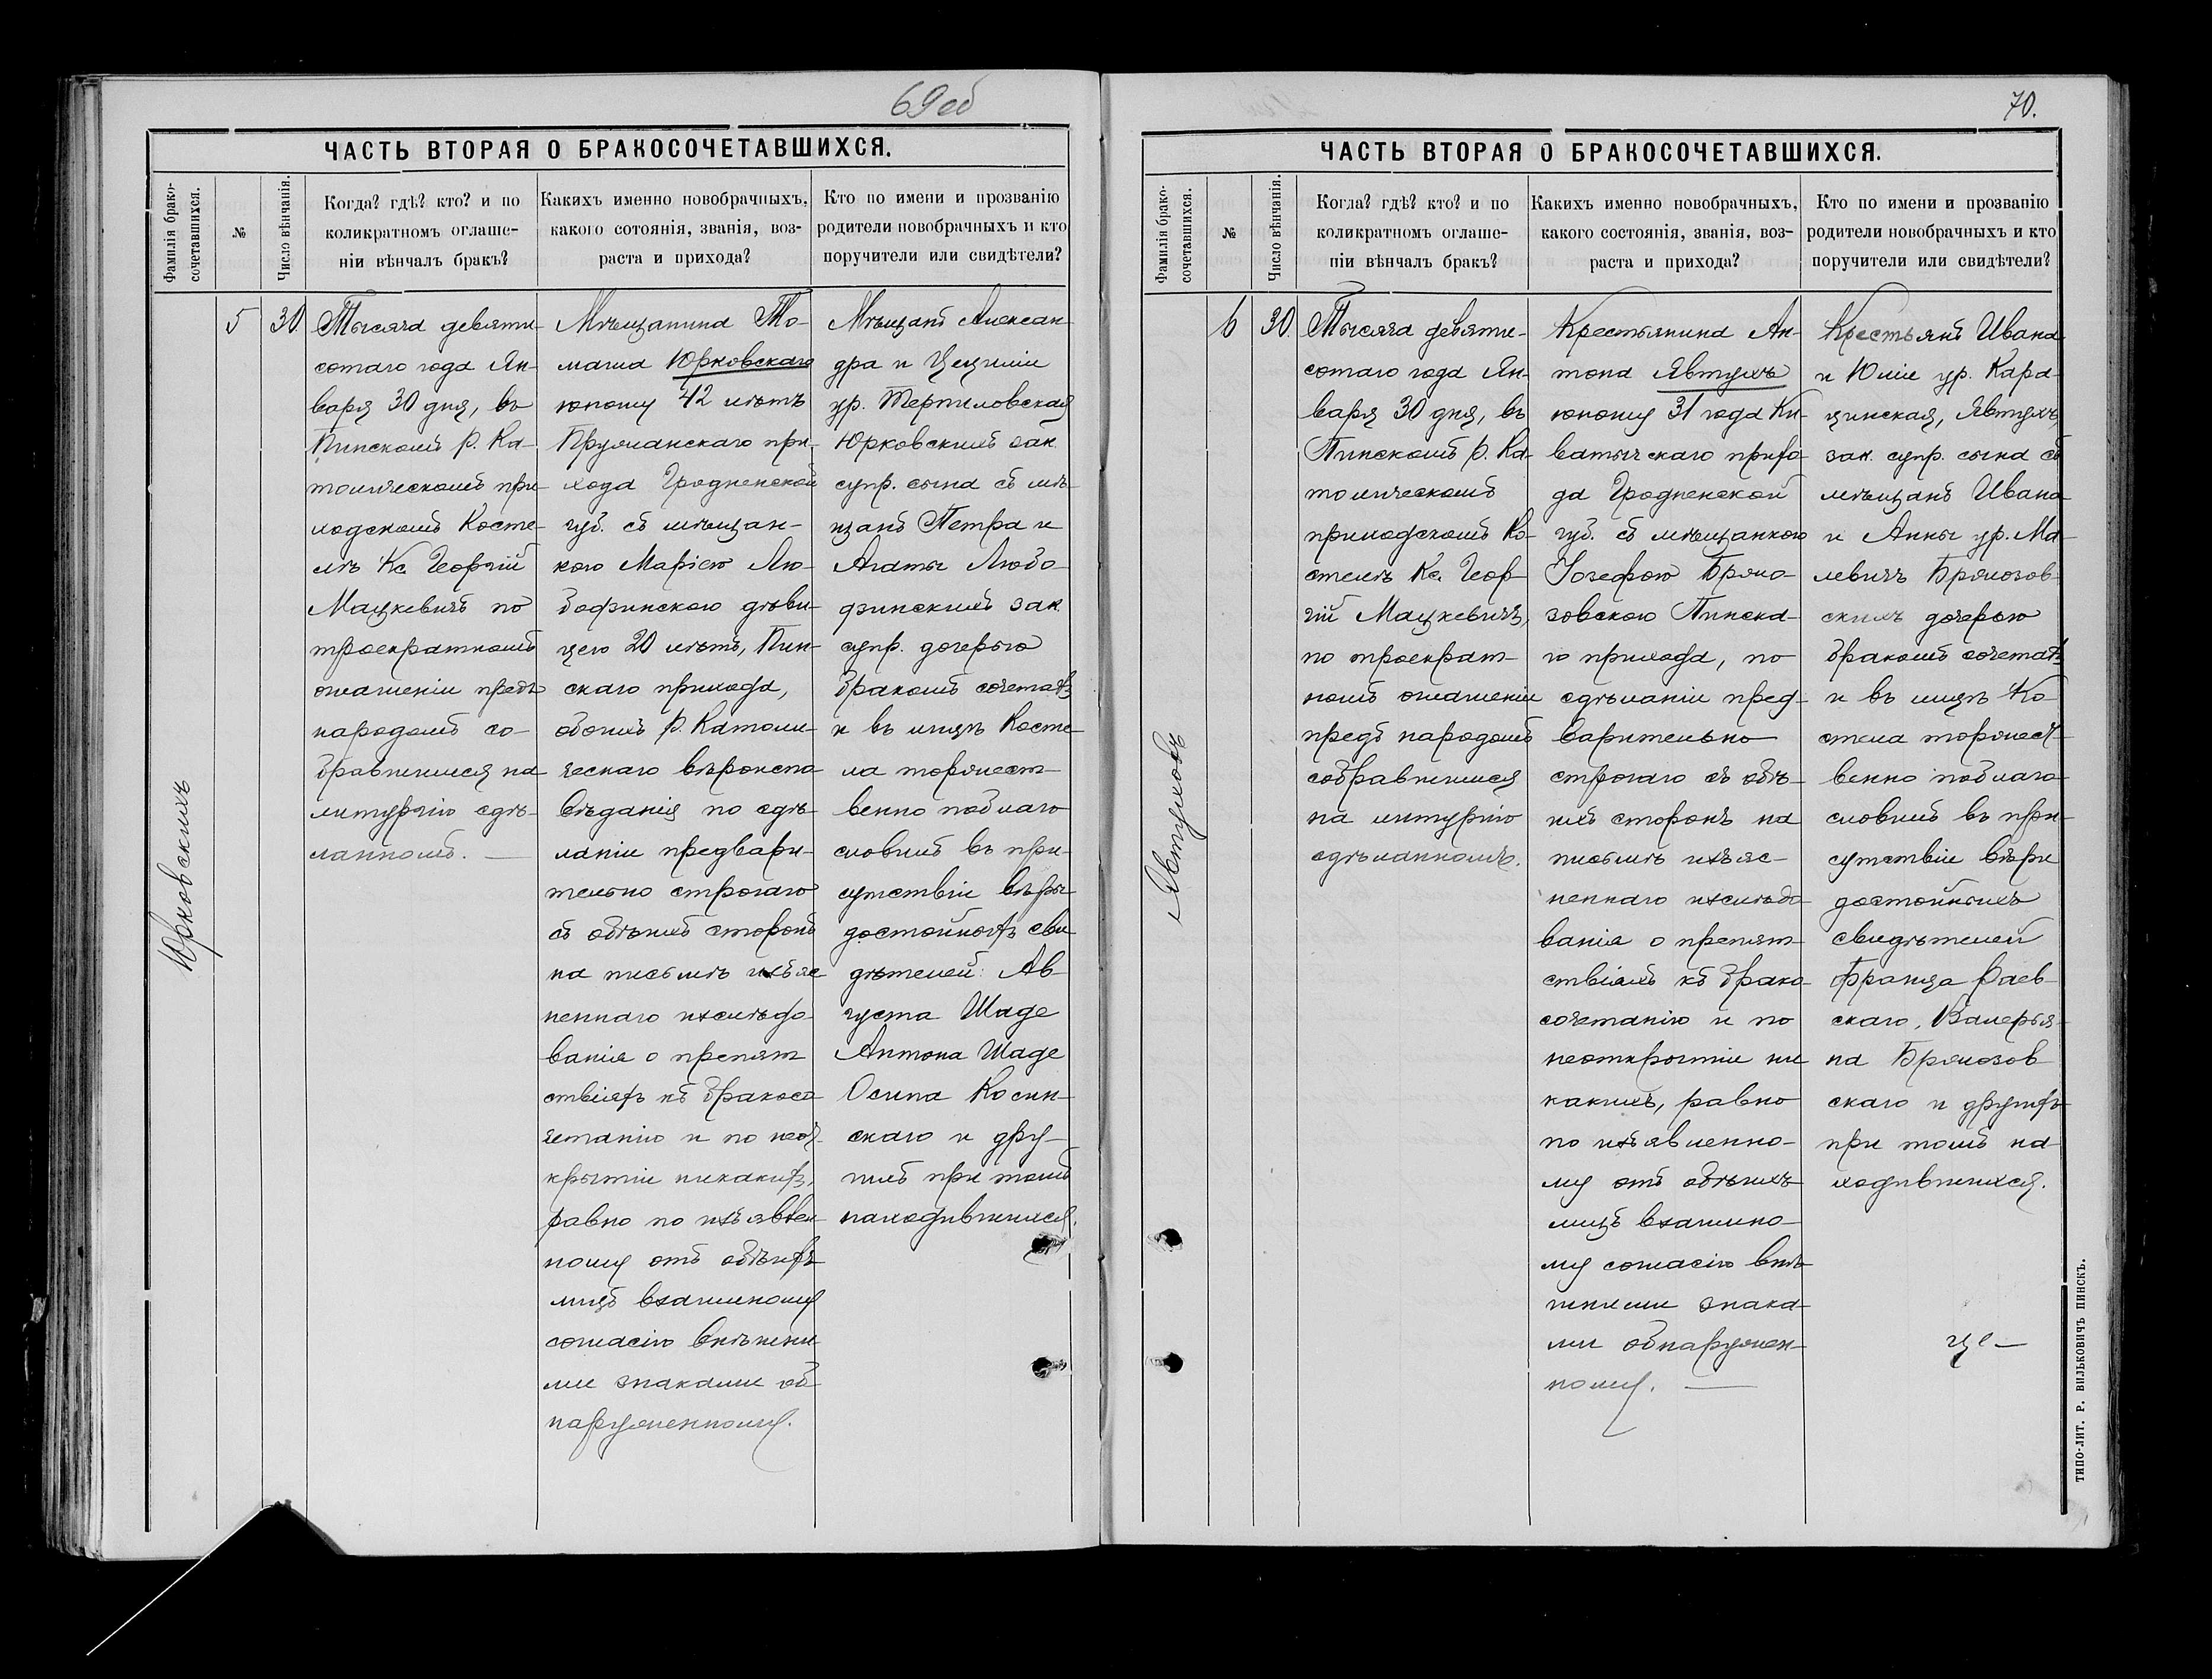 69 об
ЧАСТЬ ВТОРАЯ О БРАКОСОЧЕТАВШИХСЯ.
Фамилія брако-
сочетавшихся.
№
Число вѣнчанія.
Когда? гдѣ? кто? и по
коликратномъ оглаше-
ніи вѣнчалъ бракъ?
Какихъ именно новобрачныхъ,
какого сотоянія, званія, воз-
раста и прихода?
Кто по имени и прозванію
родители новобрачныхъ и кто
поручители или свидѣтели?
Юрковскихъ
5
30.
Тысяча девяти-
сотаго года Ян-
варя 30 дня, въ
Пинскомъ р. Ка-
толическомъ при-
ходскомъ Косте-
лѣ Кс. Георгій
Мацкевичъ по
троекратномъ
оглашеніи предъ
народомъ со-
бравшимся на
литургію сдѣ-
ланномъ. —
Мѣщанина То-
маша Юрковскаго
юношу 42 лѣтъ
Пружанскаго при-
хода Гродненской
губ. съ мѣщан-
кою Маріею Лю-
бофинскою дѣви-
цею 20 лѣтъ, Пин-
скаго прихода,
обоихъ р. Католи-
ческаго вѣроиспо
вѣданія по сдѣ-
ланіи предвари-
тельно строгаго
съ обѣихъ сторонъ
на письмѣ изъяс
неннаго изслѣдо-
ванія о препят
ствіяхъ къ бракосо
четанію и по неот
крытіи никакихъ,
равно по изъявлен
ному отъ обѣихъ
лицъ взаимному
согласію внѣшни-
ми знаками об
наруженному.
Мѣщанъ Алексан
дра и Цециліи
ур. Терпиловская
Юрковскихъ зак.
супр. сына съ мѣ-
щанъ Петра и
Агаты Любо-
финскихъ зак.
супр. дочерью
бракомъ сочеталъ
и въ лицѣ Косте
ла торжест-
венно поблаго
словилъ въ при-
сутствіи вѣры
достойныхъ сви
дѣтелей: Ав-
густа Шаде
Антона Шаде
Осипа Косин-
скаго и дру-
гихъ при томъ
находившихся.
70.
ЧАСТЬ ВТОРАЯ О БРАКОСОЧЕТАВШИХСЯ.
Фамилія брако-
сочетавшихся.
№
Число вѣнчанія.
Когда? гдѣ? кто? и по
коликратномъ оглаше-
ніи вѣнчалъ бракъ?
Какихъ именно новобрачныхъ,
какого состоянія, званія, воз-
раста и прихода?
Кто по имени и прозванію
родители новобрачныхъ и кто
поручители или свидѣтели?
Явтуховъ
6
30.
Тысяча девяти-
сотаго года Ян-
варя 30 дня, въ
Пинскомъ р. Ка-
толическомъ
приходскомъ Ко-
стелѣ Кс. Геор-
гій Мацкевичъ,
по троекрат-
номъ оглашеніи
предъ народомъ
собравшимся
на литургію
сдѣланномъ.
Крестьянина Ан-
тона Явтухъ
юношу 31 года Ки-
ватычскаго прихо-
да Гродненской
губ. съ мѣщанкою
Іозефою Бржо-
зовскою Пинска-
го прихода, по
сдѣланіи пред-
варительно
строгаго съ обѣ-
ихъ сторонъ на
письмѣ изъяс-
неннаго изслѣдо-
ванія о препят-
ствіяхъ къ брако-
сочетанію и по
неоткрытіи ни
какихъ, равно
по изъявленно-
му отъ обѣихъ
лицъ взаимно-
му согласію внѣ-
шними знака-
ми обнаружен-
ному. —
Крестьянъ Ивана
и Юліи ур. Кара-
цинская, Явтухъ
зак. супр. сына съ
мѣщанъ Ивана
и Анны ур. Ма-
левичъ Бржозов-
скихъ дочерью
бракомъ сочеталъ
и въ лицѣ Ко-
стела торжест-
венно поблаго-
словилъ въ при-
сутствіи вѣры
достойныхъ
свидѣтелей
Франца Раев-
скаго, Валерья-
на Бржозов
скаго и другихъ
при томъ на-
ходившихся.
ТИПО-ЛИТ. Р. ВИЛЬКОВИЧЪ ПИНСКЪ.